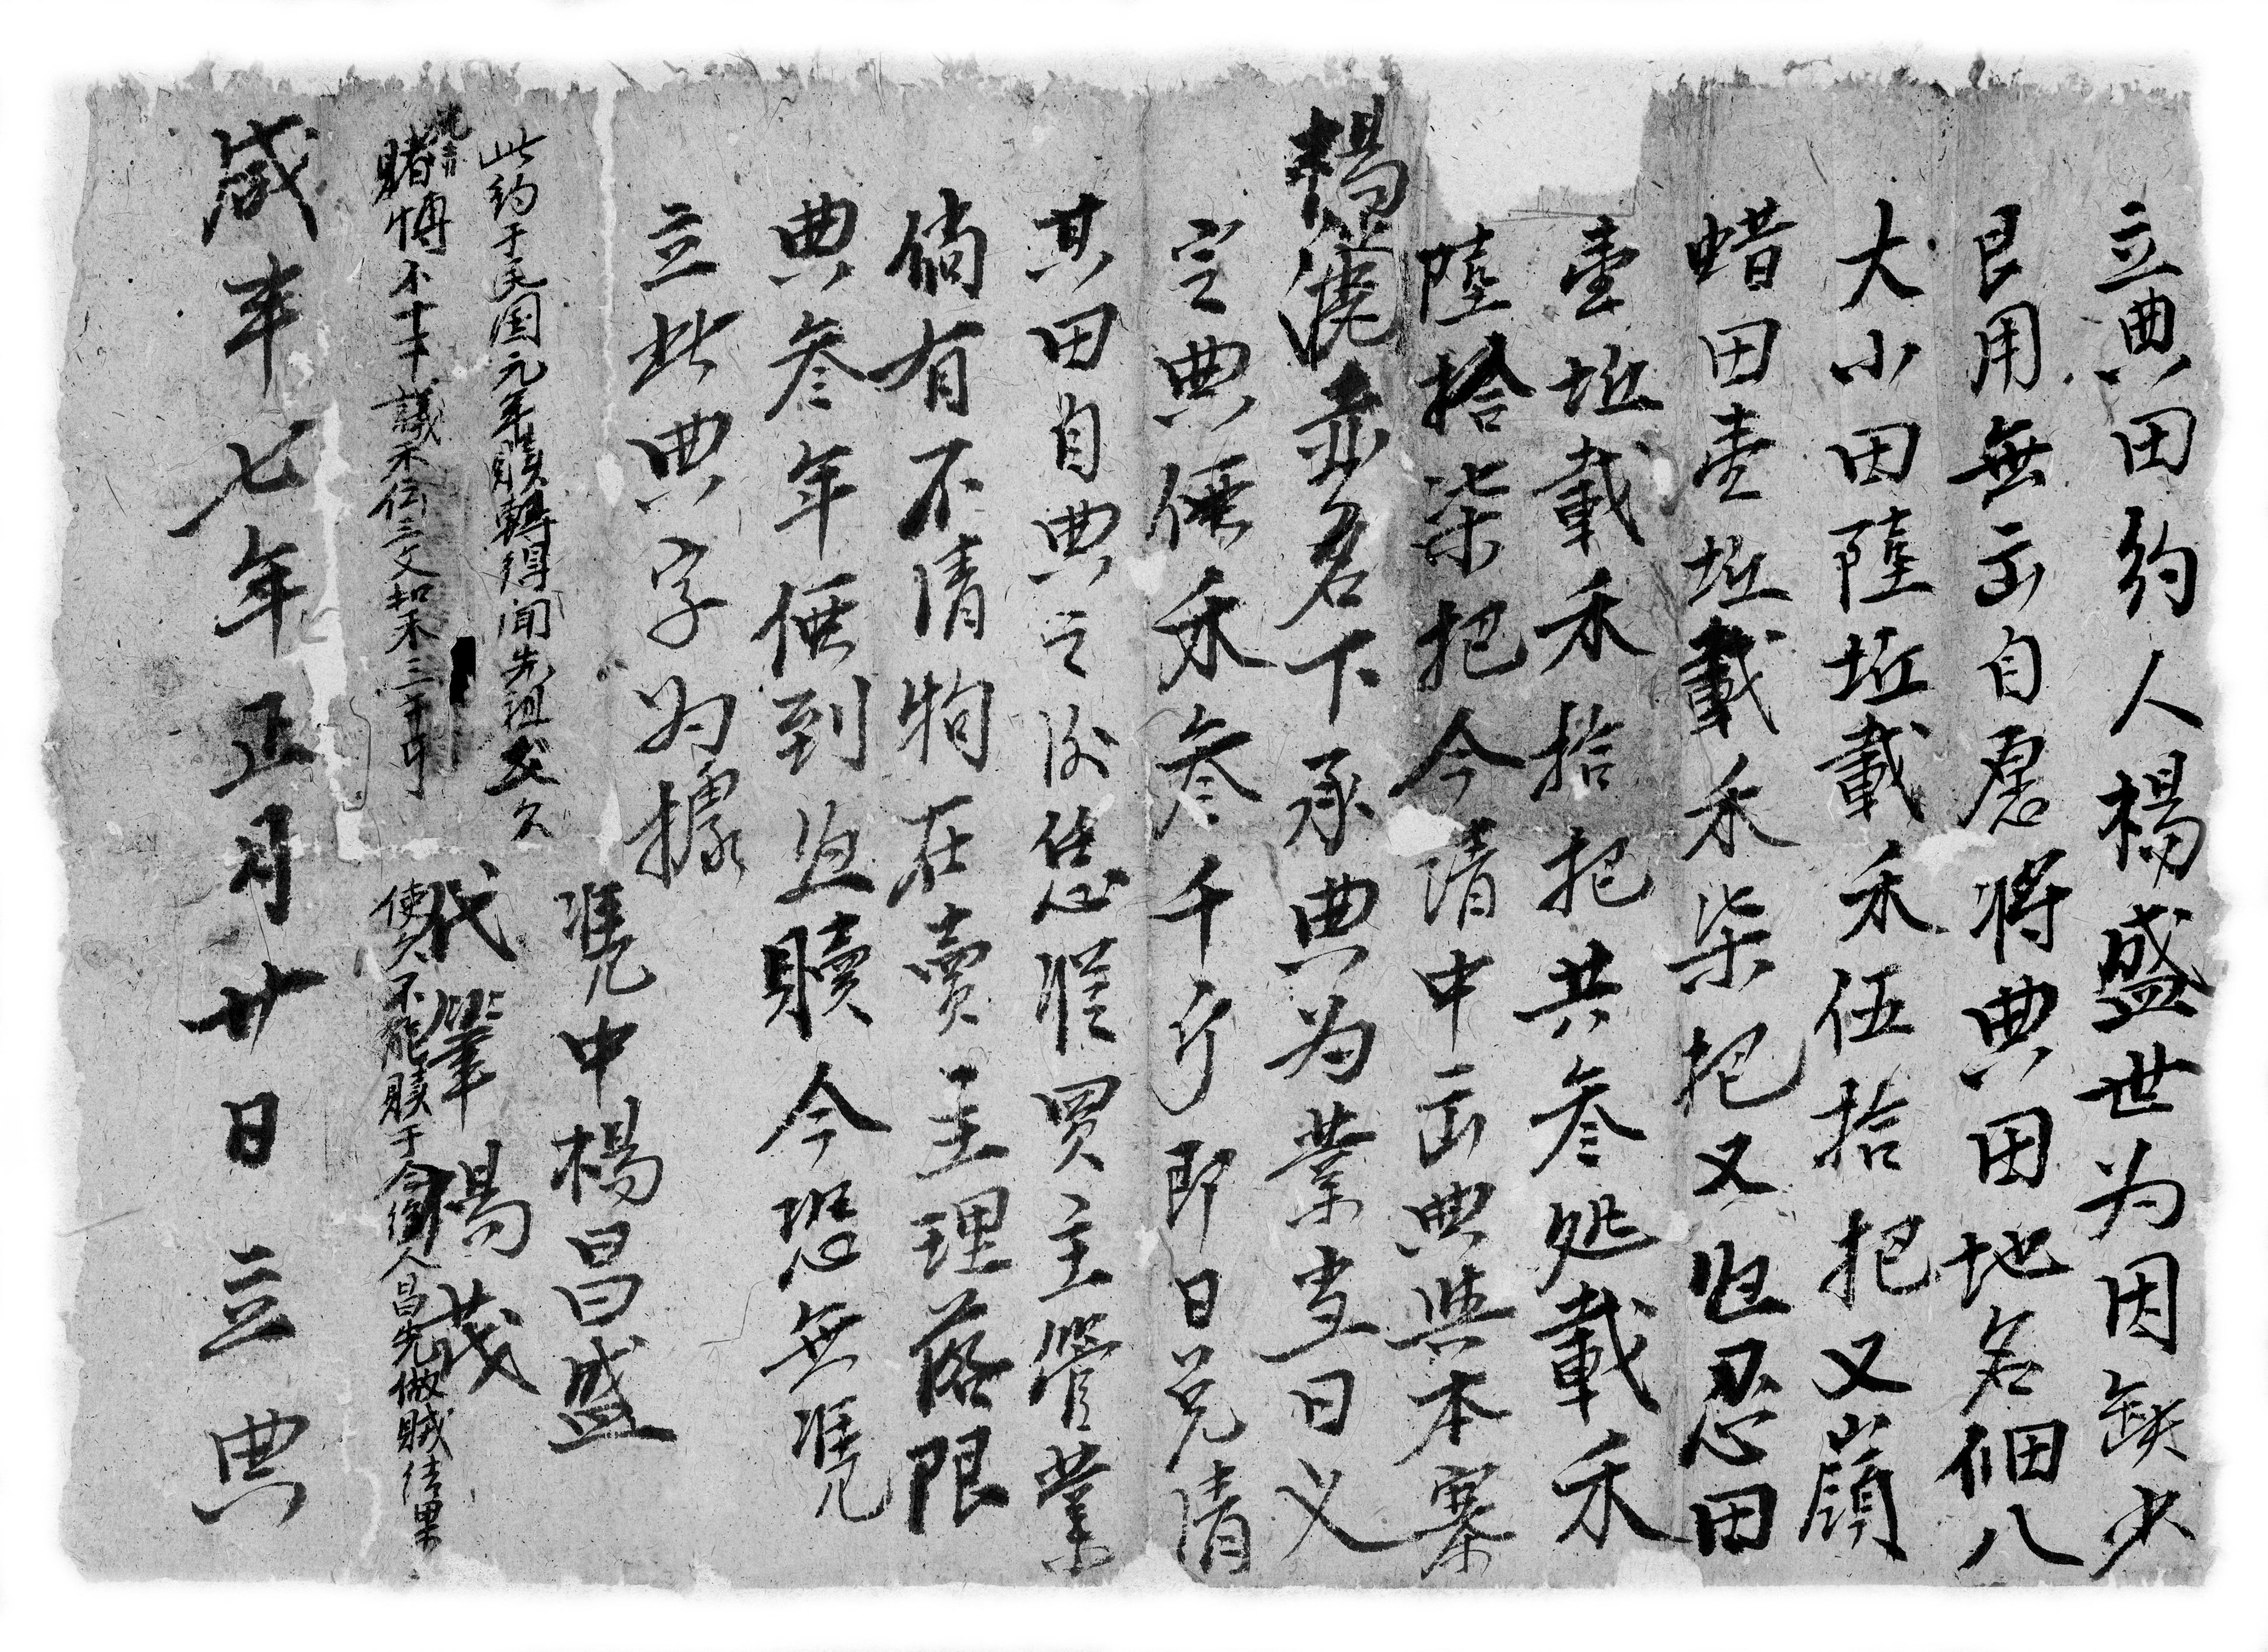 立典田約人楊盛世为因缺少
艮用無出自愿將典田地名個八
大小田陸坵載禾伍拾把又嶺
蜡田壹坵載禾柒把又忍田
壹坵載禾拾把共叁処載禾
陸拾柒把今請中出典與本寨
楊名下承典为業当日义
定典價禾叁千斤即日兑清
其田自典之後任從買主管業
倘有不清物在賣主理落限
典叁年價到迠贖今恐無凴
立此典字为據
凴中楊昌盛
代筆楊茂
此約于民国元年贖轉得闻先祖父欠
賭博不幸議不伝三文扣禾三千斤
使久不能贖于今衝人昌先做賊结果
咸丰七年正月廿日立典